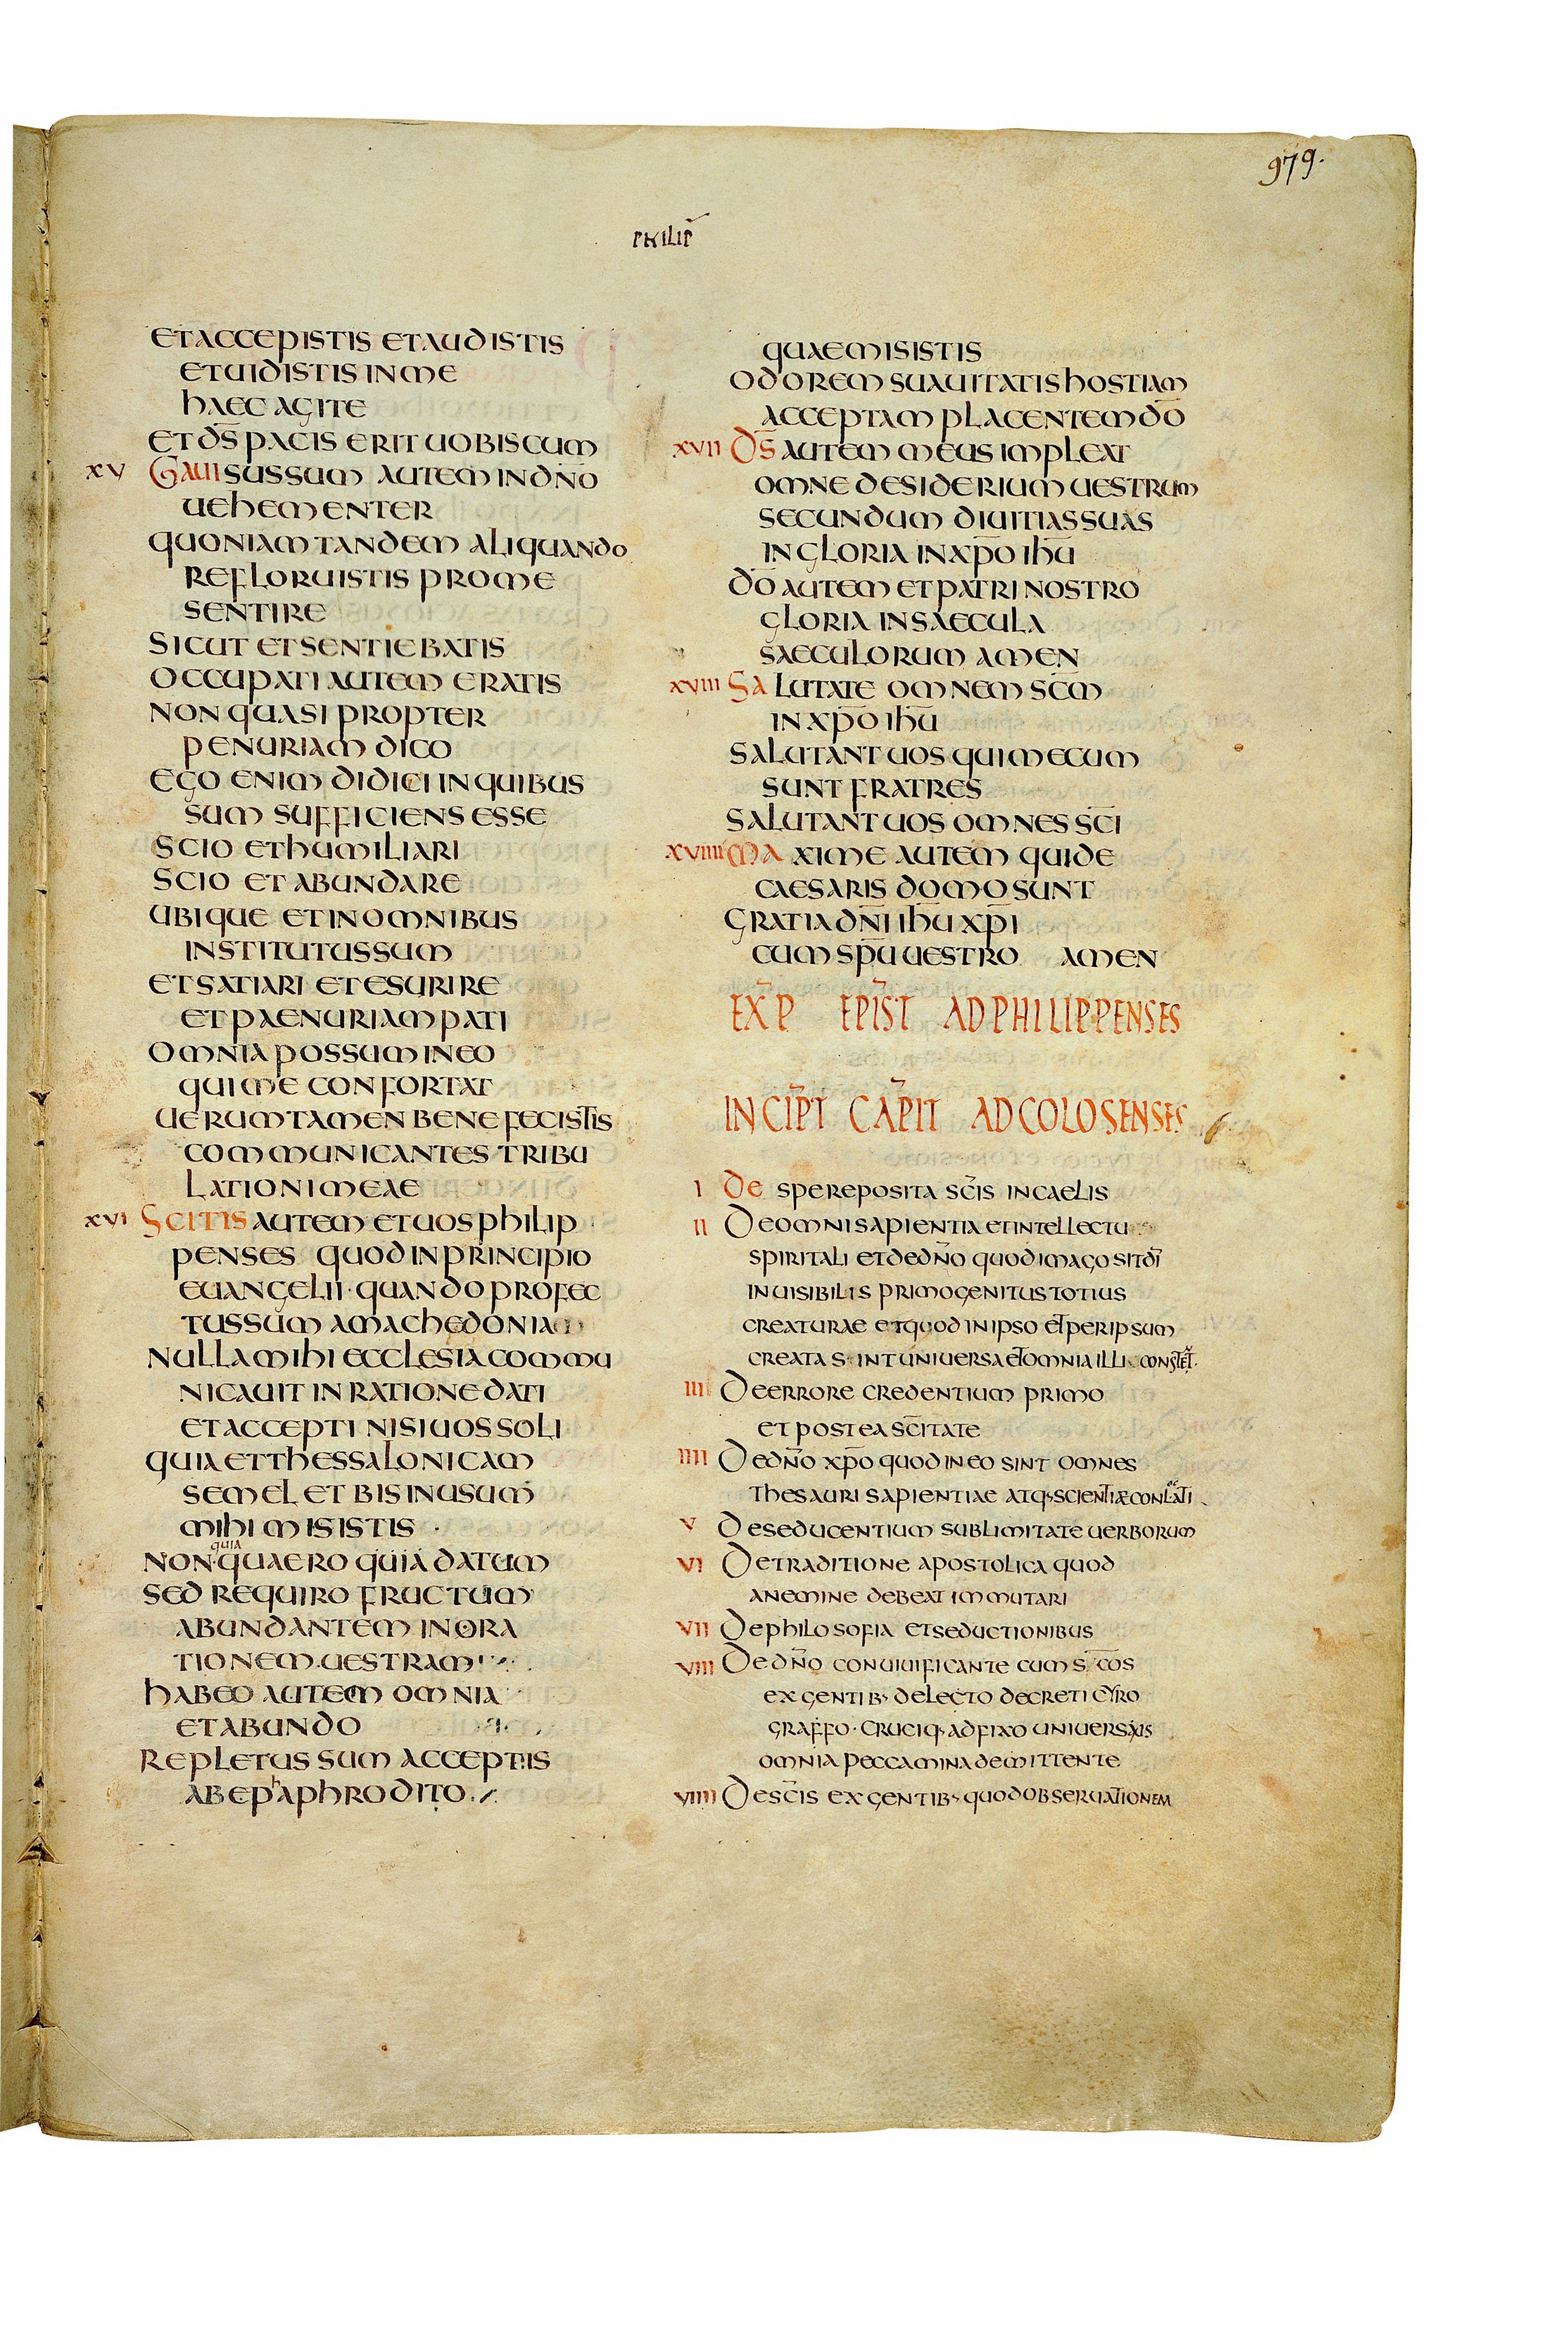 979.
PHILIP̄
ET ACCEPISTIS ET AUDISTIS
ET UIDISTIS IN ME
HAEC AGITE
ET D̄S PACIS ERIT UOBISCUM
XV GAUISUS SUM AUTEM IN DN̄O
UEHEMENTER
QUONIAM TANDEM ALIQUANDO
REFLORUISTIS PRO ME
SENTIRE
SICUT ET SENTIEBATIS
OCCUPATI AUTEM ERATIS
NON QUASI PROPTER
PENURIAM DICO
EGO ENIM DIDICI IN QUIBUS
SUM SUFFICIENS ESSE
SCIO ET HUMILIARI
SCIO ET ABUNDARE
UBIQUE ET IN OMNIBUS
INSTITUTUS SUM
ET SATIARI ET ESURIRE
ET PAENURIAM PATI
OMNIA POSSUM IN EO
QUI ME CONFORTAT
UERUMTAMEN BENE FECISTIS
COMMUNICANTES TRIBU
LATIONI MEAE
XVI SCITIS AUTEM ET UOS PHILIP
PENSES QUOD IN PRINCIPIO
EUANGELII · QUANDO PROFEC
TUS SUM A MACHEDONIA
NULLA MIHI ECCLESIA COMMU
NICAUIT IN RATIONE DATI
ET ACCEPTI NISI UOS SOLI
QUIA ET THESSALONICAM
SEMEL ET BIS IN USUM
MIHI MISISTIS
quia
NON QUAERO QUIA DATUM
SED REQUIRO FRUCTUM
ABUNDANTEM IN ORA
TIONEM UESTRAM
HABEO AUTEM OMNIA
ET ABUNDO
REPLETUS SUM ACCEPTIS
AB EPAPHRODITO
QUAE MISISTIS
ODOREM SUAUITATIS HOSTIAM
ACCEPTAM PLACENTEM D̄O
XVII D̄S AUTEM MEUS IMPLEAT
OMNE DESIDERIUM UESTRUM
SECUNDUM DIUITIAS SUAS
IN GLORIA IN XP̄O IH̄U
D̄O AUTEM ET PATRI NOSTRO
GLORIA IN SAECULA
SAECULORUM AMEN
XVIII SALUTATE OMNEM SC̄M
IN XP̄O IH̄U
SALUTANT UOS QUI MECUM
SUNT FRATRES
SALUTANT UOS OMNES SC̄I
XVIIII MAXIME AUTEM QUI DE
CAESARIS DOMO SUNT
GRATIA DN̄I IH̄U XP̄I
CUM SP̄U UESTRO AMEN
EXP̄ EPIS̄T AD PHILIPPENSES
INCIP̄T CAP̄IT AD COLOSENSES
I DE SPE REPOSITA SC̄IS IN CAELIS
II DE OMNI SAPIENTIA ET INTELLECTU
SPIRITALI ET DE DN̄O QUOD IMAGO SIT D̄I
INUISIBILIS PRIMOGENITUS TOTIUS
CREATURAE ET QUOD IN IPSO ET PER IPSUM
CREATA SINT UNIUERSA ET OMNIA ILLI CONSTET
III DE ERRORE CREDENTIUM PRIMO
ET POSTEA SC̄ITATE
IIII DE DN̄O XP̄O QUOD IN EO SINT OMNES
THESAURI SAPIENTIAE ATQ· SCIENTIAE CONLATI
V DE SEDUCENTIUM SUBLIMITATE UERBORUM
VI DE TRADITIONE APOSTOLICA QUOD
A NEMINE DEBEAT IMMUTARI
VII DE PHILOSOFIA ET SEDUCTIONIBUS
VIII DE DN̄O CONUIUIFICANTE CUM S C̄OS
EX GENTIB· DELECTO DECRETI CYRO
GRAFFO · CRUCIQ· ADFIXO UNIUERSIS
OMNIA PECCAMINA DEMITTENTE
VIIII DE SC̄IS EX GENTIB· QUOD OBSERUATIONEM